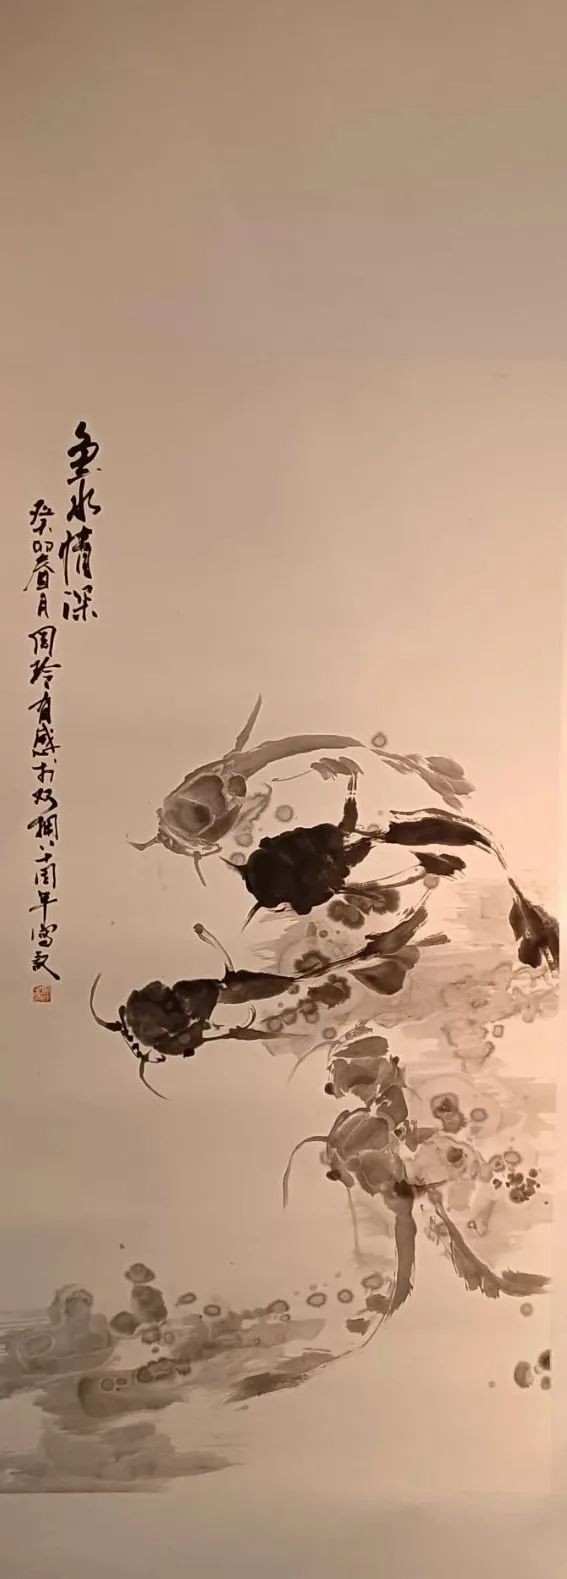 鱼水情深
癸卯春月周玲有感于双拥八十周年写意